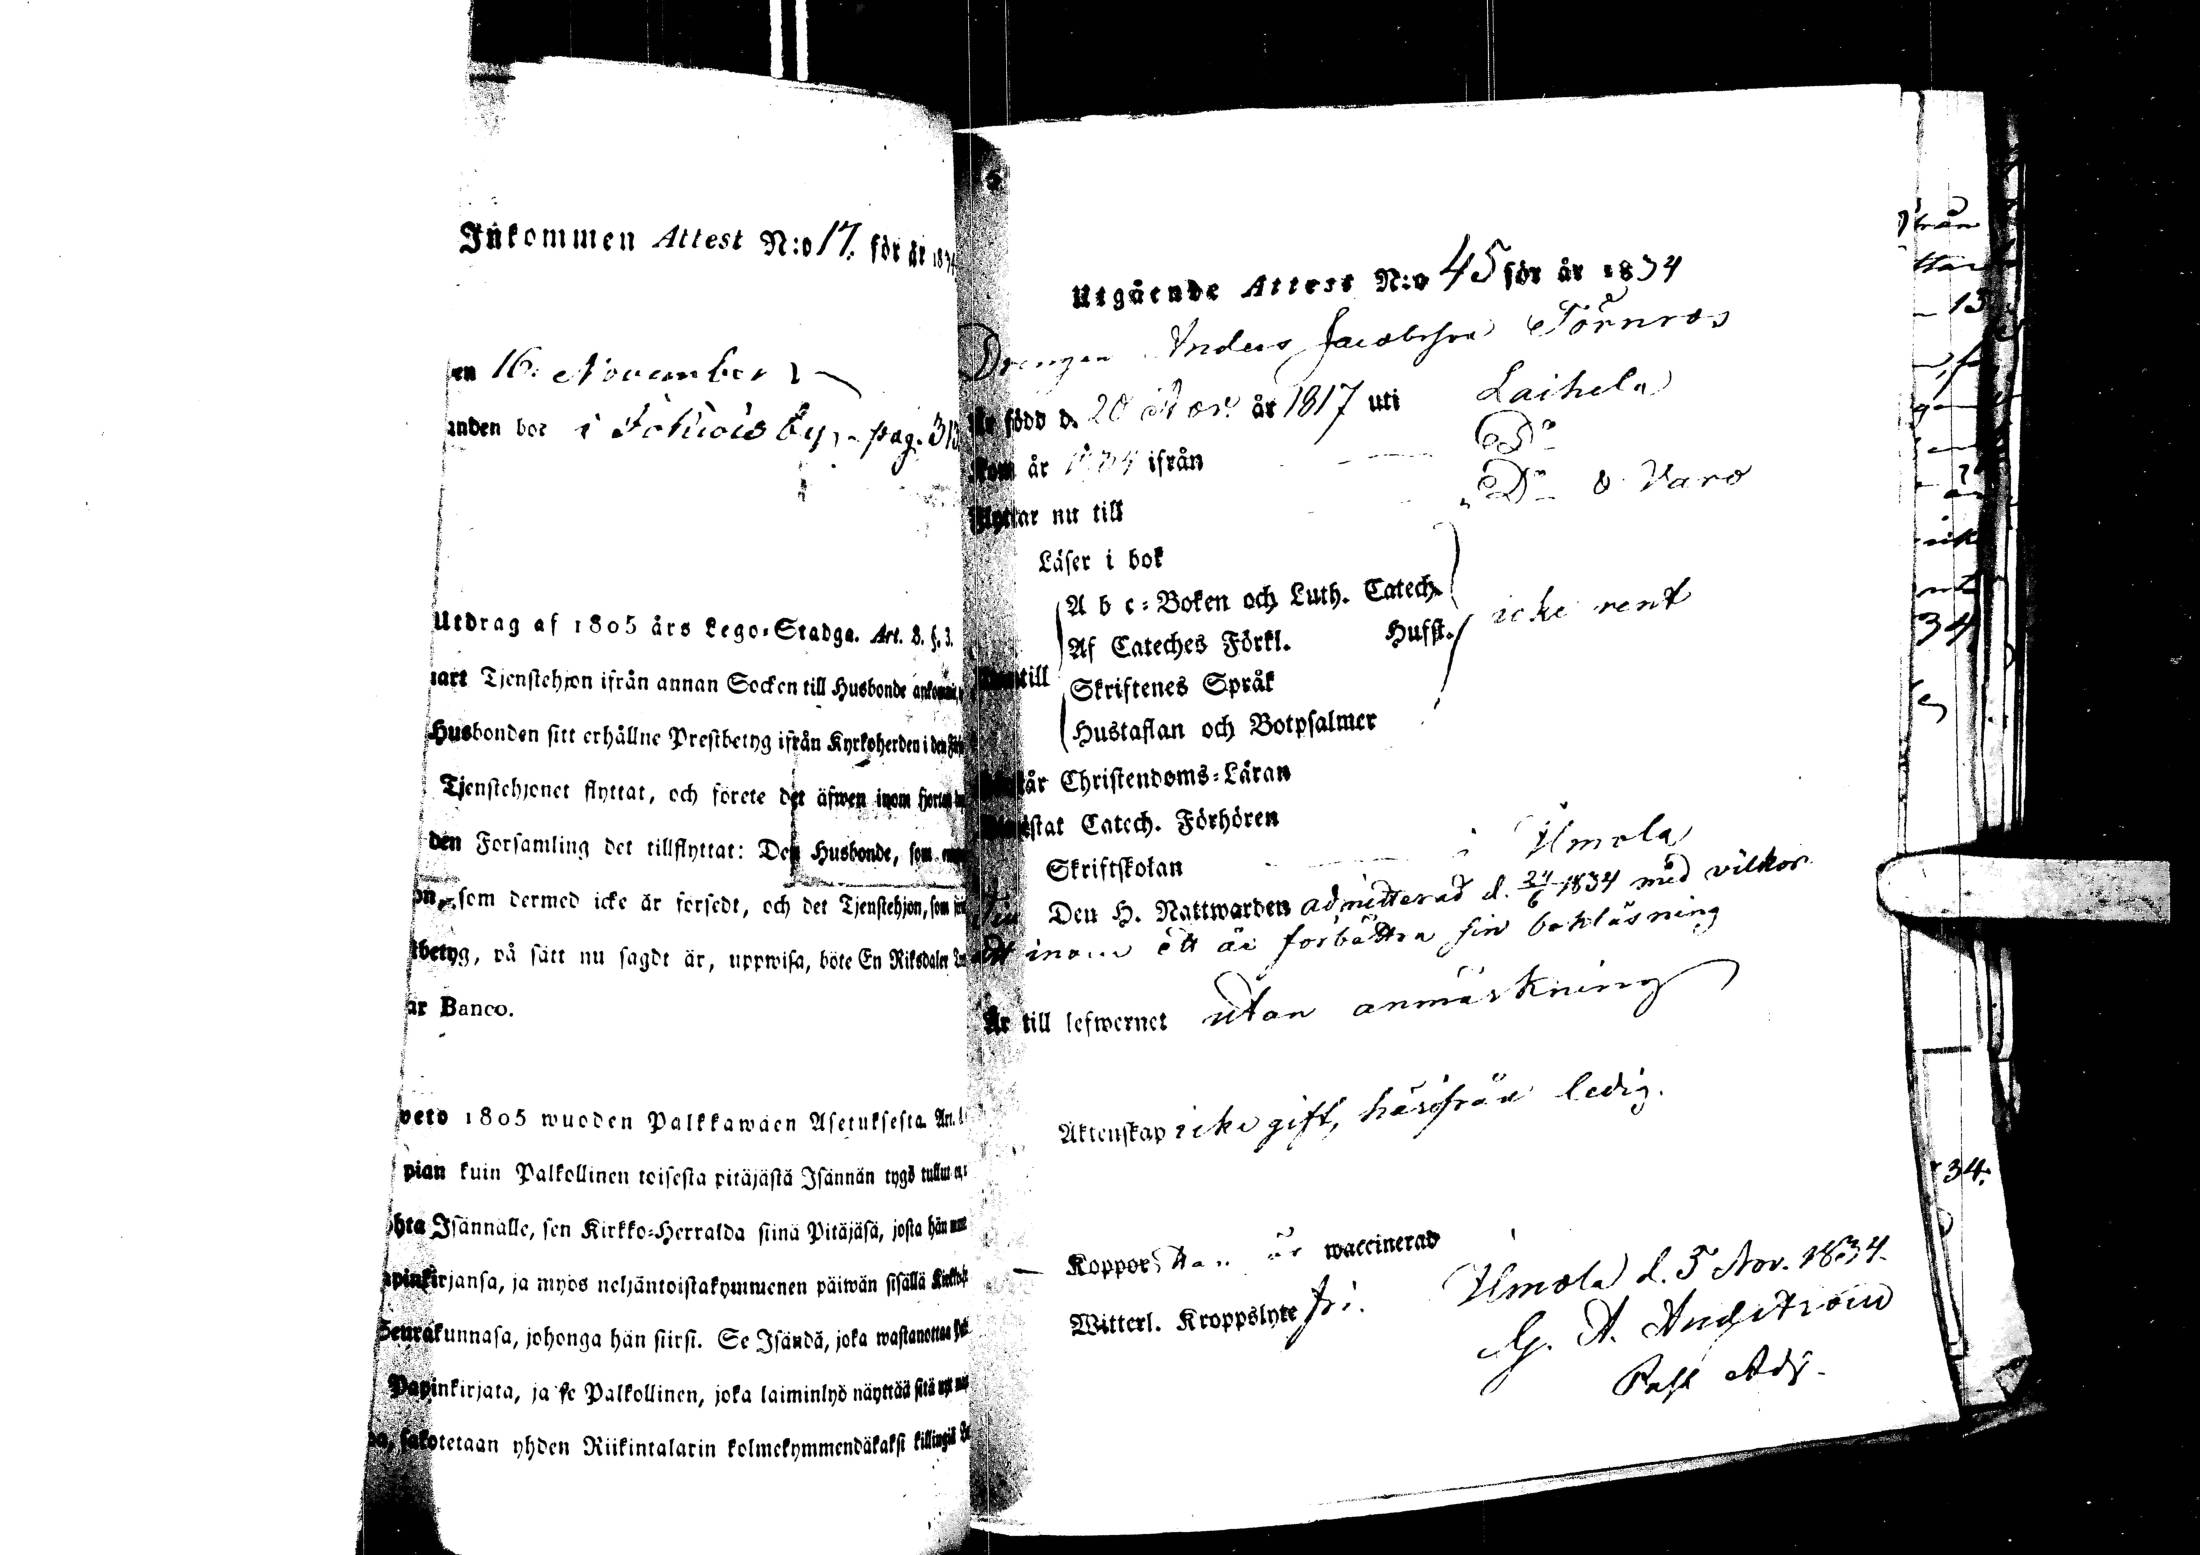 Inkommen Attest N:o 17. för år 1834
en 16. November
anden bor i Jokiois by, pag. 313
Utdrag af 1805 års Lego-Stadga. Art. 8. §. 3.
nart Tjenstehjon ifrån annan Socken till Husbonde ankommit,
Husbonden sitt erhållne Prestbetyg ifrån Kyrkoherden i den
Tjenstehjonet flyttat, och förete det äfwen inom fjorton
den Forsamling det tillflyttat: Den Husbonde, som
on, som dermed icke är forsedt, och det Tjenstehjon, som
tbetyg, på sätt nu sagdt är, uppwisa, böte En Riksdaler
ar Banco.
veto 1805 wuoden Palkkawäen Asetuksesta. Art.
pian kuin Palkollinen toisesta pitäjästä Isännän tygö tullut
ohta Isännälle, sen Kirkko-Herralda siinä Pitäjäsä, josta hän
apinkirjansa, ja myös neljäntoistakymmenen päiwän sisällä
Seurakunnasa, johonga hän siirsi. Se Isändä, joka wastanottaa
Papinkirjata, ja se Palkollinen, joka laiminlyö näyttää sitä
sakotetaan yhden Riikintalarin kolmekymmendäkaksi killingiä
Utgående Attest N:o 45 för år 1834
Drengen Anders Jacobsson Törnros
Är född d. 20 Nov. år 1817 uti Laihela
Kom år 1834 ifrån D:o
Flyttar nu till D:o o. Varo
Läser i bok
A b c-Boken och Luth. Catech.
Af Cateches Förkl. Husft. icke rent
Skriftenes Språk
Hustaflan och Botpsalmer
år Christendoms-Läran
istat Catech. Förhören
Skriftskolan i Ilmola
Den H. Nattwarden admitterad d. 24/6 1834 med vilkor
att inom ett år förbättra sin bokläsning
Är till lefwernet utan anmärkning
Äktenskap icke gift, härifrån ledig.
Koppor är waccinerad
Witterl. Kroppslyte fri. Ilmola d. 5 Nov. 1834.
G. A. Angström
Past Adj.